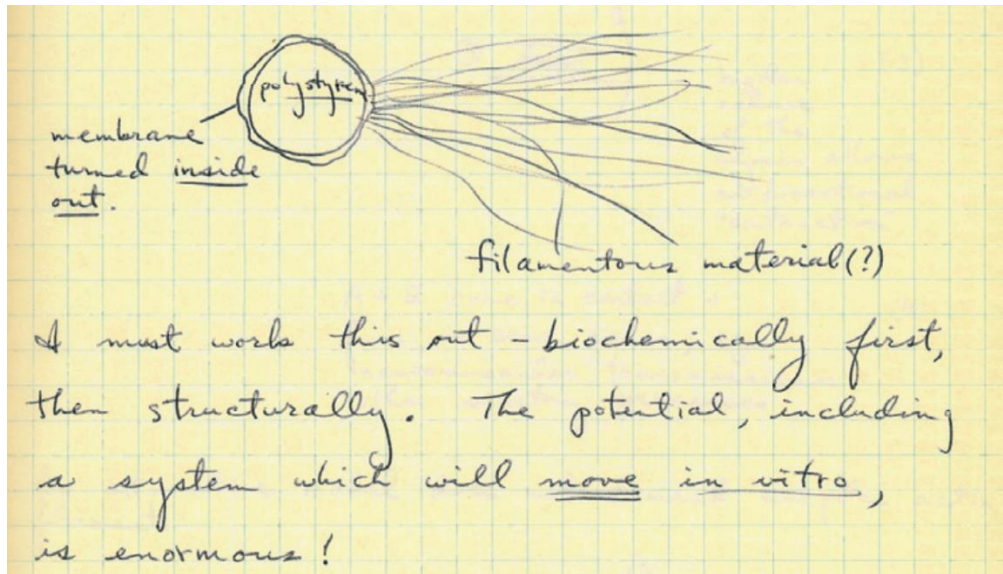 polystyrene
membrane
turned inside
out.
filamentous material (?)
I must work this out - biochemically first,
then structurally. The potential, including
a system which will move in vitro,
is enormous!